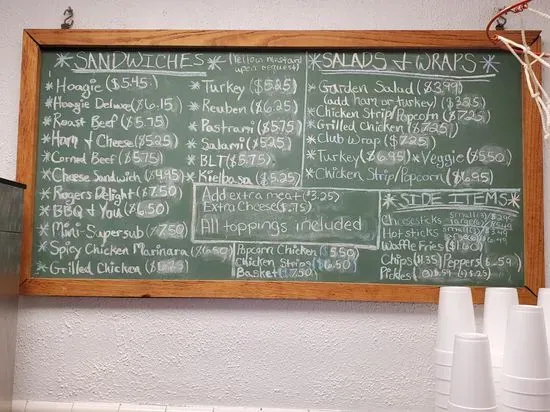 * SANDWICHES *
(Yellow mustard
upon request)
* Hoagie ($5.45)
* Hoagie Deluxe ($6.15)
* Roast Beef ($5.75)
* Ham & Cheese ($5.25)
* Corned Beef ($5.75)
* Cheese Sandwich ($4.95)
* Rogers Delight ($7.50)
* BBQ & You ($6.50)
* Mini-Supersub ($7.50)
* Spicy Chicken Marinara ($6.50)
* Grilled Chicken
* Turkey ($5.25)
* Reuben ($6.25)
* Pastrami ($5.75)
* Salami ($5.25)
* BLT ($5.75)
* Kielbasa ($5.25)
Add extra meat ($3.25)
Extra Cheese ($.75)
All toppings included
Popcorn Chicken ($5.50)
Chicken Strips ($6.50)
Basket ($7.50)
* SALADS & WRAPS *
* Garden Salad ($3.99)
(add ham or turkey) ($3.25)
* Chicken Strip/Popcorn ($7.25)
* Grilled Chicken ($7.25)
* Club Wrap ($7.25)
* Turkey ($6.95) * Veggie ($5.50)
* Chicken Strip/Popcorn ($6.95)
* SIDE ITEMS *
Cheesesticks small
Hot sticks small
Waffle Fries ($1.60)
Chips ($1.35) Peppers ($.59)
Pickles